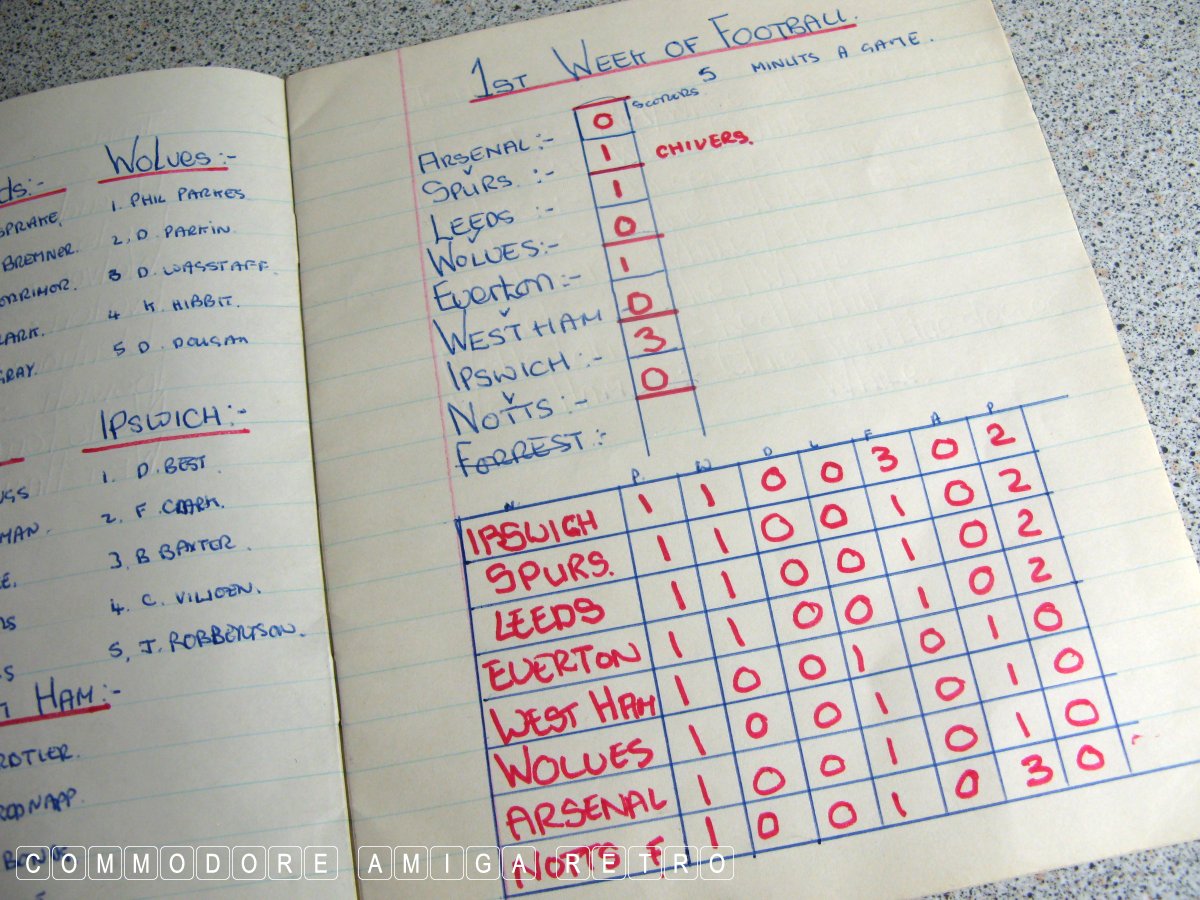 Wolves:-
1. PHIL PARKES
2. D. PARKIN.
3 D. WAGSTAFF.
4 K. HIBBIT.
5 D. DOUGAN
IPSWICH:-
1. D. BEST.
2. F. CLARK.
3. B BAXTER.
4. C. VILJOEN.
5. J. ROBBERTSON.
HAM:-
1ST WEEK OF FOOTBALL.
SCORERS 5 MINUTS A GAME.
ARSENAL:- 0
SPURS. :- 1 CHIVERS.
LEEDS :- 1
WOLVES:- 0
Everton:- 1
WEST HAM 0
IPSWICH:- 3
NOTTS:- 0
FORREST:-
N P W D L F A P
IPSWICH 1 1 0 0 3 0 2
SPURS. 1 1 0 0 1 0 2
LEEDS 1 1 0 0 1 0 2
EVERTON 1 1 0 0 1 0 2
WEST HAM 1 0 0 1 0 1 0
WOLVES 1 0 0 1 0 1 0
ARSENAL 1 0 0 1 0 1 0
NOTTS F 1 0 0 1 0 3 0
COMMODORE AMIGA RETRO